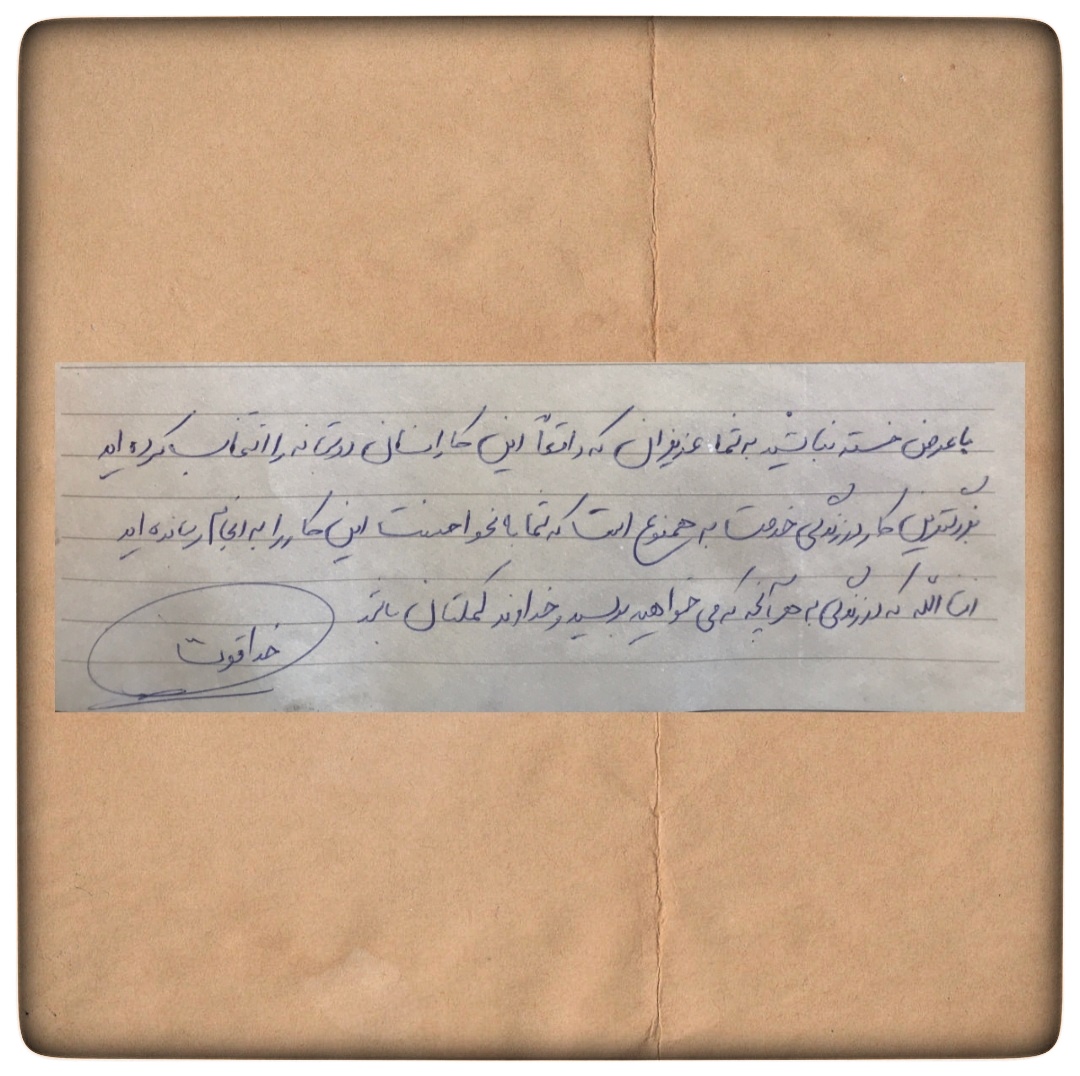 با عرض خسته نباشید به شما عزیزان که واقعاً این کار انسان دوستانه را انتخاب کرده اید
بزرگترین کار در زندگی خدمت به همنوع است که شما به نحو احسنت این کار را به انجام رسانده اید
انشاالله که در زندگی به هر آنچه که می خواهید برسید و خداوند کمکتان باشد
خدا قوت